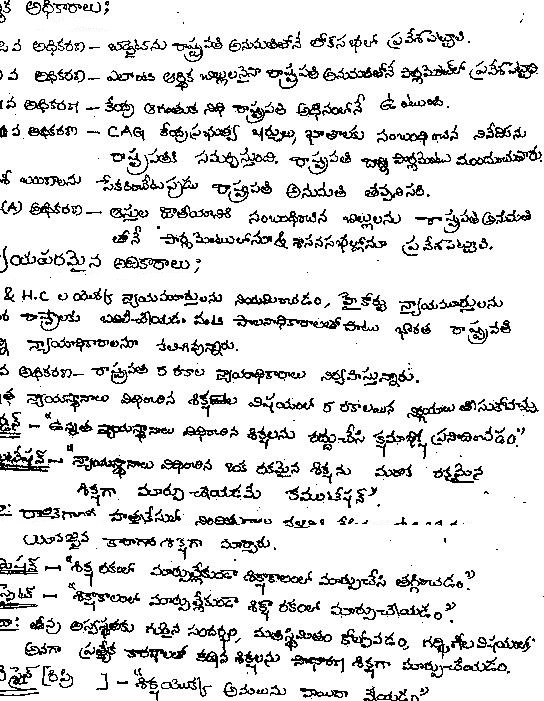 అధికారాలు;
వ అధికరణ – బడ్జెట్‌ను రాష్ట్రపతి అనుమతితోనే లోక్‌సభలో ప్రవేశపెట్టాలి.
వ అధికరణ – ఆర్థిక బిల్లులనైనా రాష్ట్రపతి అనుమతితోనే పార్లమెంట్‌లో ప్రవేశపెట్టాలి
వ అధికరణ – కేంద్ర ఆగంతుక నిధి రాష్ట్రపతి అధీనంలోనే ఉంటుంది.
వ అధికరణ – CAG కేంద్రప్రభుత్వ ఖర్చులు, ఖాతాలకు సంబంధించిన నివేదికను
రాష్ట్రపతికి సమర్పిస్తుంది. రాష్ట్రపతి దాన్ని పార్లమెంటు ముందుంచుతారు
రాష్ట్రపతి అనుమతి తప్పనిసరి.
(A) అధికరణ – ఆస్తుల జాతీయానికి సంబంధించిన బిల్లులను రాష్ట్రపతి అనుమతి
తోనే పార్లమెంటులోనూ శాసనసభల్లోనూ ప్రవేశపెట్టాలి.
అధికారాలు;
& H.C ల యొక్క న్యాయమూర్తులను నియమించడం, హైకోర్టు న్యాయమూర్తులను
రాష్ట్రాలకు బదిలీచేయడం వంటి పాలనాధికారాలతో పాటు భారత రాష్ట్రపతి
న్యాయాధికారాలనూ కలిగివున్నారు.
వ అధికరణ – రాష్ట్రపతి రకాల న్యాయాధికారాలు నిర్వహిస్తున్నారు.
న్యాయస్థానాలు విధించిన శిక్షల విషయంలో రకాలయిన నిర్ణయాలు తీసుకోవచ్చు
– "ఉన్నత న్యాయస్థానాలు విధించిన శిక్షలను రద్దుచేసి క్షమాభిక్ష ప్రసాదించడం."
– "న్యాయస్థానాలు విధించిన ఒక రకమైన శిక్షను మరొక రకమైన
శిక్షగా మార్పు చేయడమే కమ్యుటేషన్".
హత్యకేసులో
కారాగార శిక్షగా మార్చారు.
– "శిక్ష రకంలో మార్పులేకుండా శిక్షాకాలంలో మార్పుచేసి తగ్గించడం."
– "శిక్షాకాలంలో మార్పులేకుండా శిక్షా రకంలో మార్పుచేయడం".
తీవ్ర అస్వస్థతకు గురైన సందర్భం, మతిస్థిమితం కోల్పోవడం, గర్భిణీల విషయంలో
ప్రత్యేక కారణాలతో కఠిన శిక్షలను సాధారణ శిక్షగా మార్పుచేయడం.
– "శిక్షయొక్క అమలును వాయిదా వేయడం"